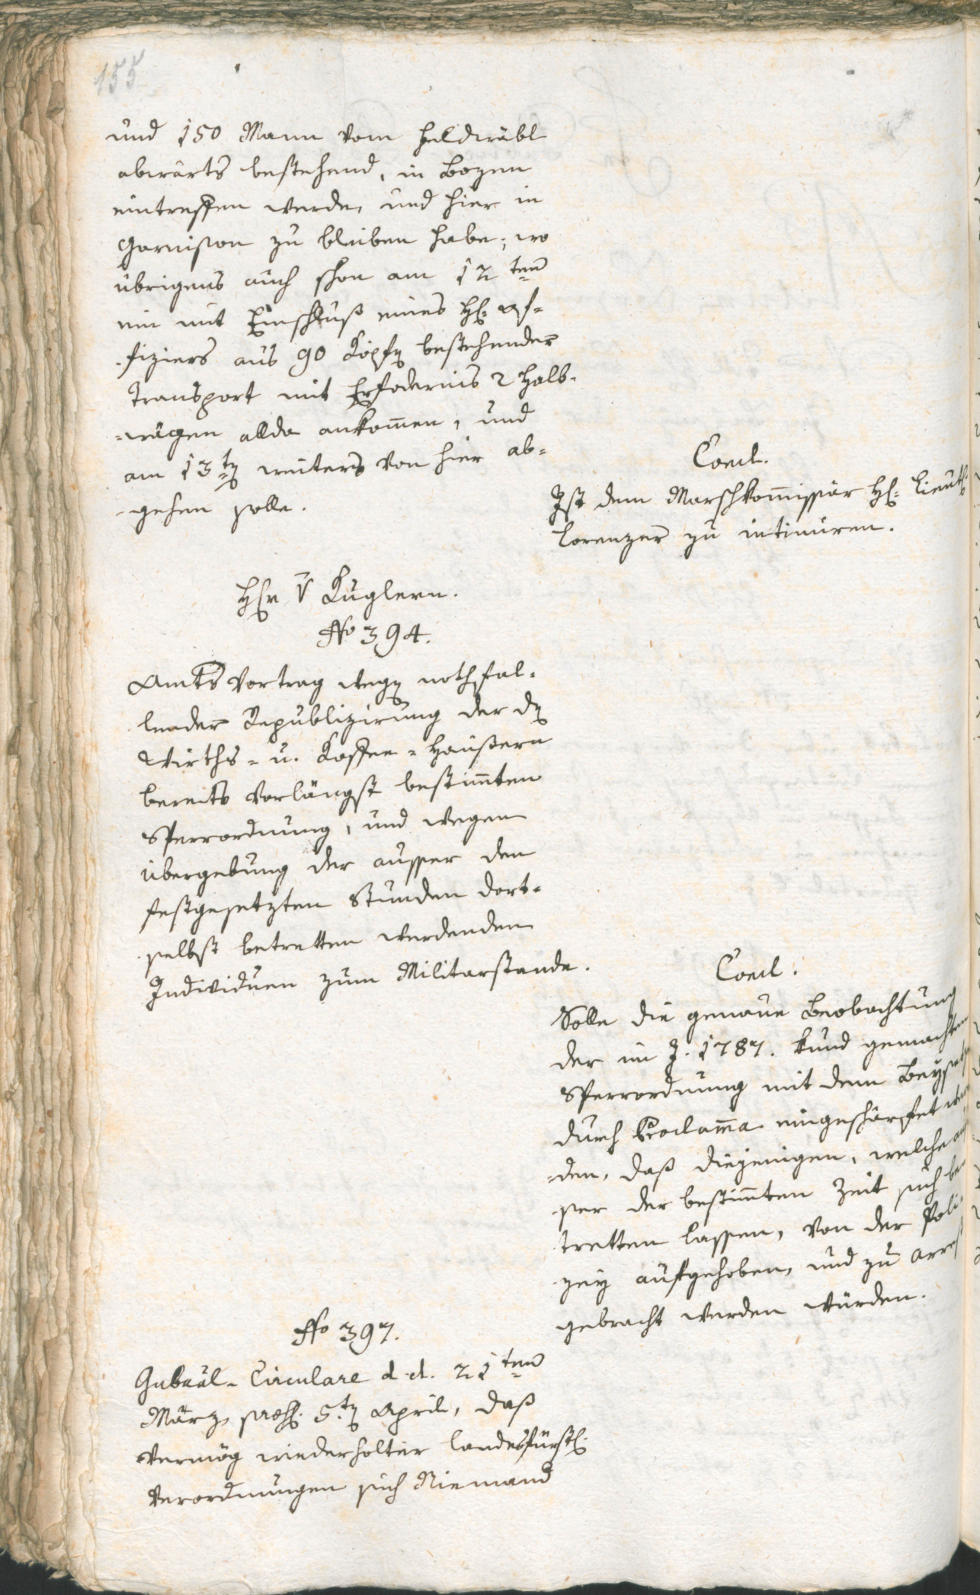 155
und 150 Mann vom Feldwäbl
abwärts bestehend, in Bozen
eintreffen werde, und hier in
Garnison zu bleiben habe; wo
übrigens auch schon am 12ten
ein mit Einschluß eines H: Of-
fiziers aus 90 Köpfen bestehender
Transport mit Erfoderniß 2 Halb-
-wägen allda ankommen, und
am 13ten weiters von hier ab-
gehen solle.
Concl.
Ist dem Marschkommissär H: Lieut:
Lorenzer zu intimiren.
Herr v Kuglern.
No 394.
Amts Vortrag wegen nothfal-
lender Republizirung der den
Wirths- u. Kaffee-Häußern
bereits vorlängst bestimmten
Sperrordnung, und wegen
übergebung der ausser den
festgesetzten Stunden dort-
selbst betretten werdenden
Individuen zum Militarstande.
Concl.
Solle die genaue Beobachtung
der im J. 1787. kund gemachten
Sperrordnung mit dem Beysatz
durch Proclamma eingeschärfet wer
-den, daß diejenigen, welche aus
ser der bestimmten Zeit sich be
tretten lassen, von der Poli
zey aufgehoben, und zu Arrest
gebracht werden würden.
No 397.
Gubernial-Circulare d. d. 21ten
März, praes. 5ten April, daß
vermög wiederholter landesfürstl:
Verordnungen sich Niemand